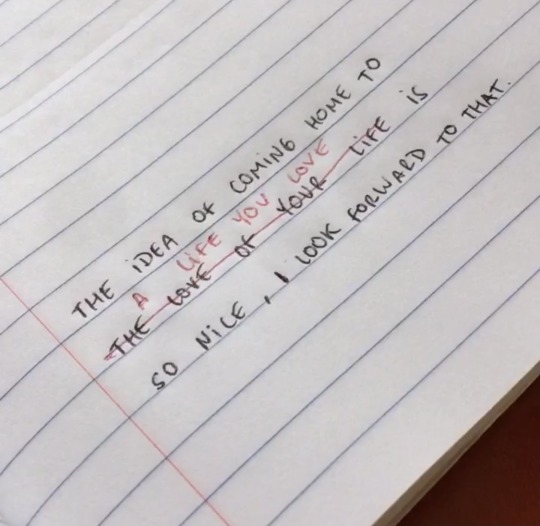 THE IDEA OF COMING HOME TO
A LIFE YOU LOVE
THE LOVE OF YOUR LIFE IS
SO NICE, I LOOK FORWARD TO THAT.